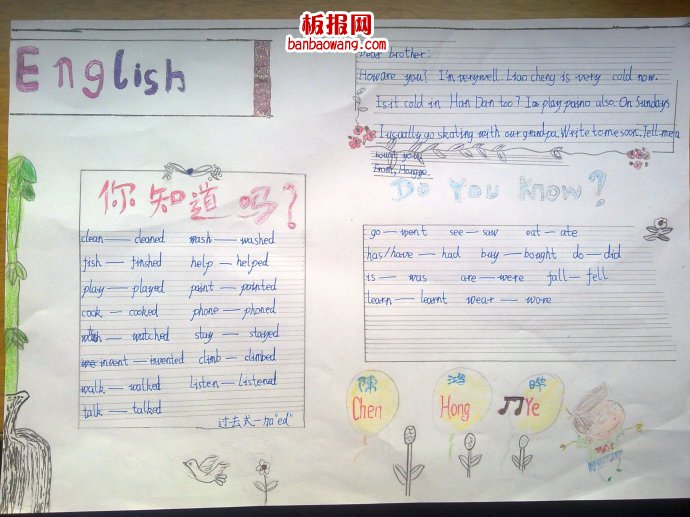 板报网
banbaowang.com
English
Dear brother.
How are you? I'm very well. Liao cheng is very cold now.
Is it cold in Han Dan too? I play also. On Sundays
I usually go skating with our grandpa. Write to me soon. Tell me a
你知道吗?
clean — cleaned wash — washed
fish — finshed help — helped
play — played paint — painted
cook — cooked phone — phoned
watched stay — stayed
invent — invented climb — climbed
walk — walked listen — listened
talk — talked
过去式 "ed"
Do You Know?
go — went see — saw eat — ate
has/have — had buy — bought do — did
is — was are — were fall — fell
learn — learnt wear — wore
陈 鸿 晔
Chen Hong Ye